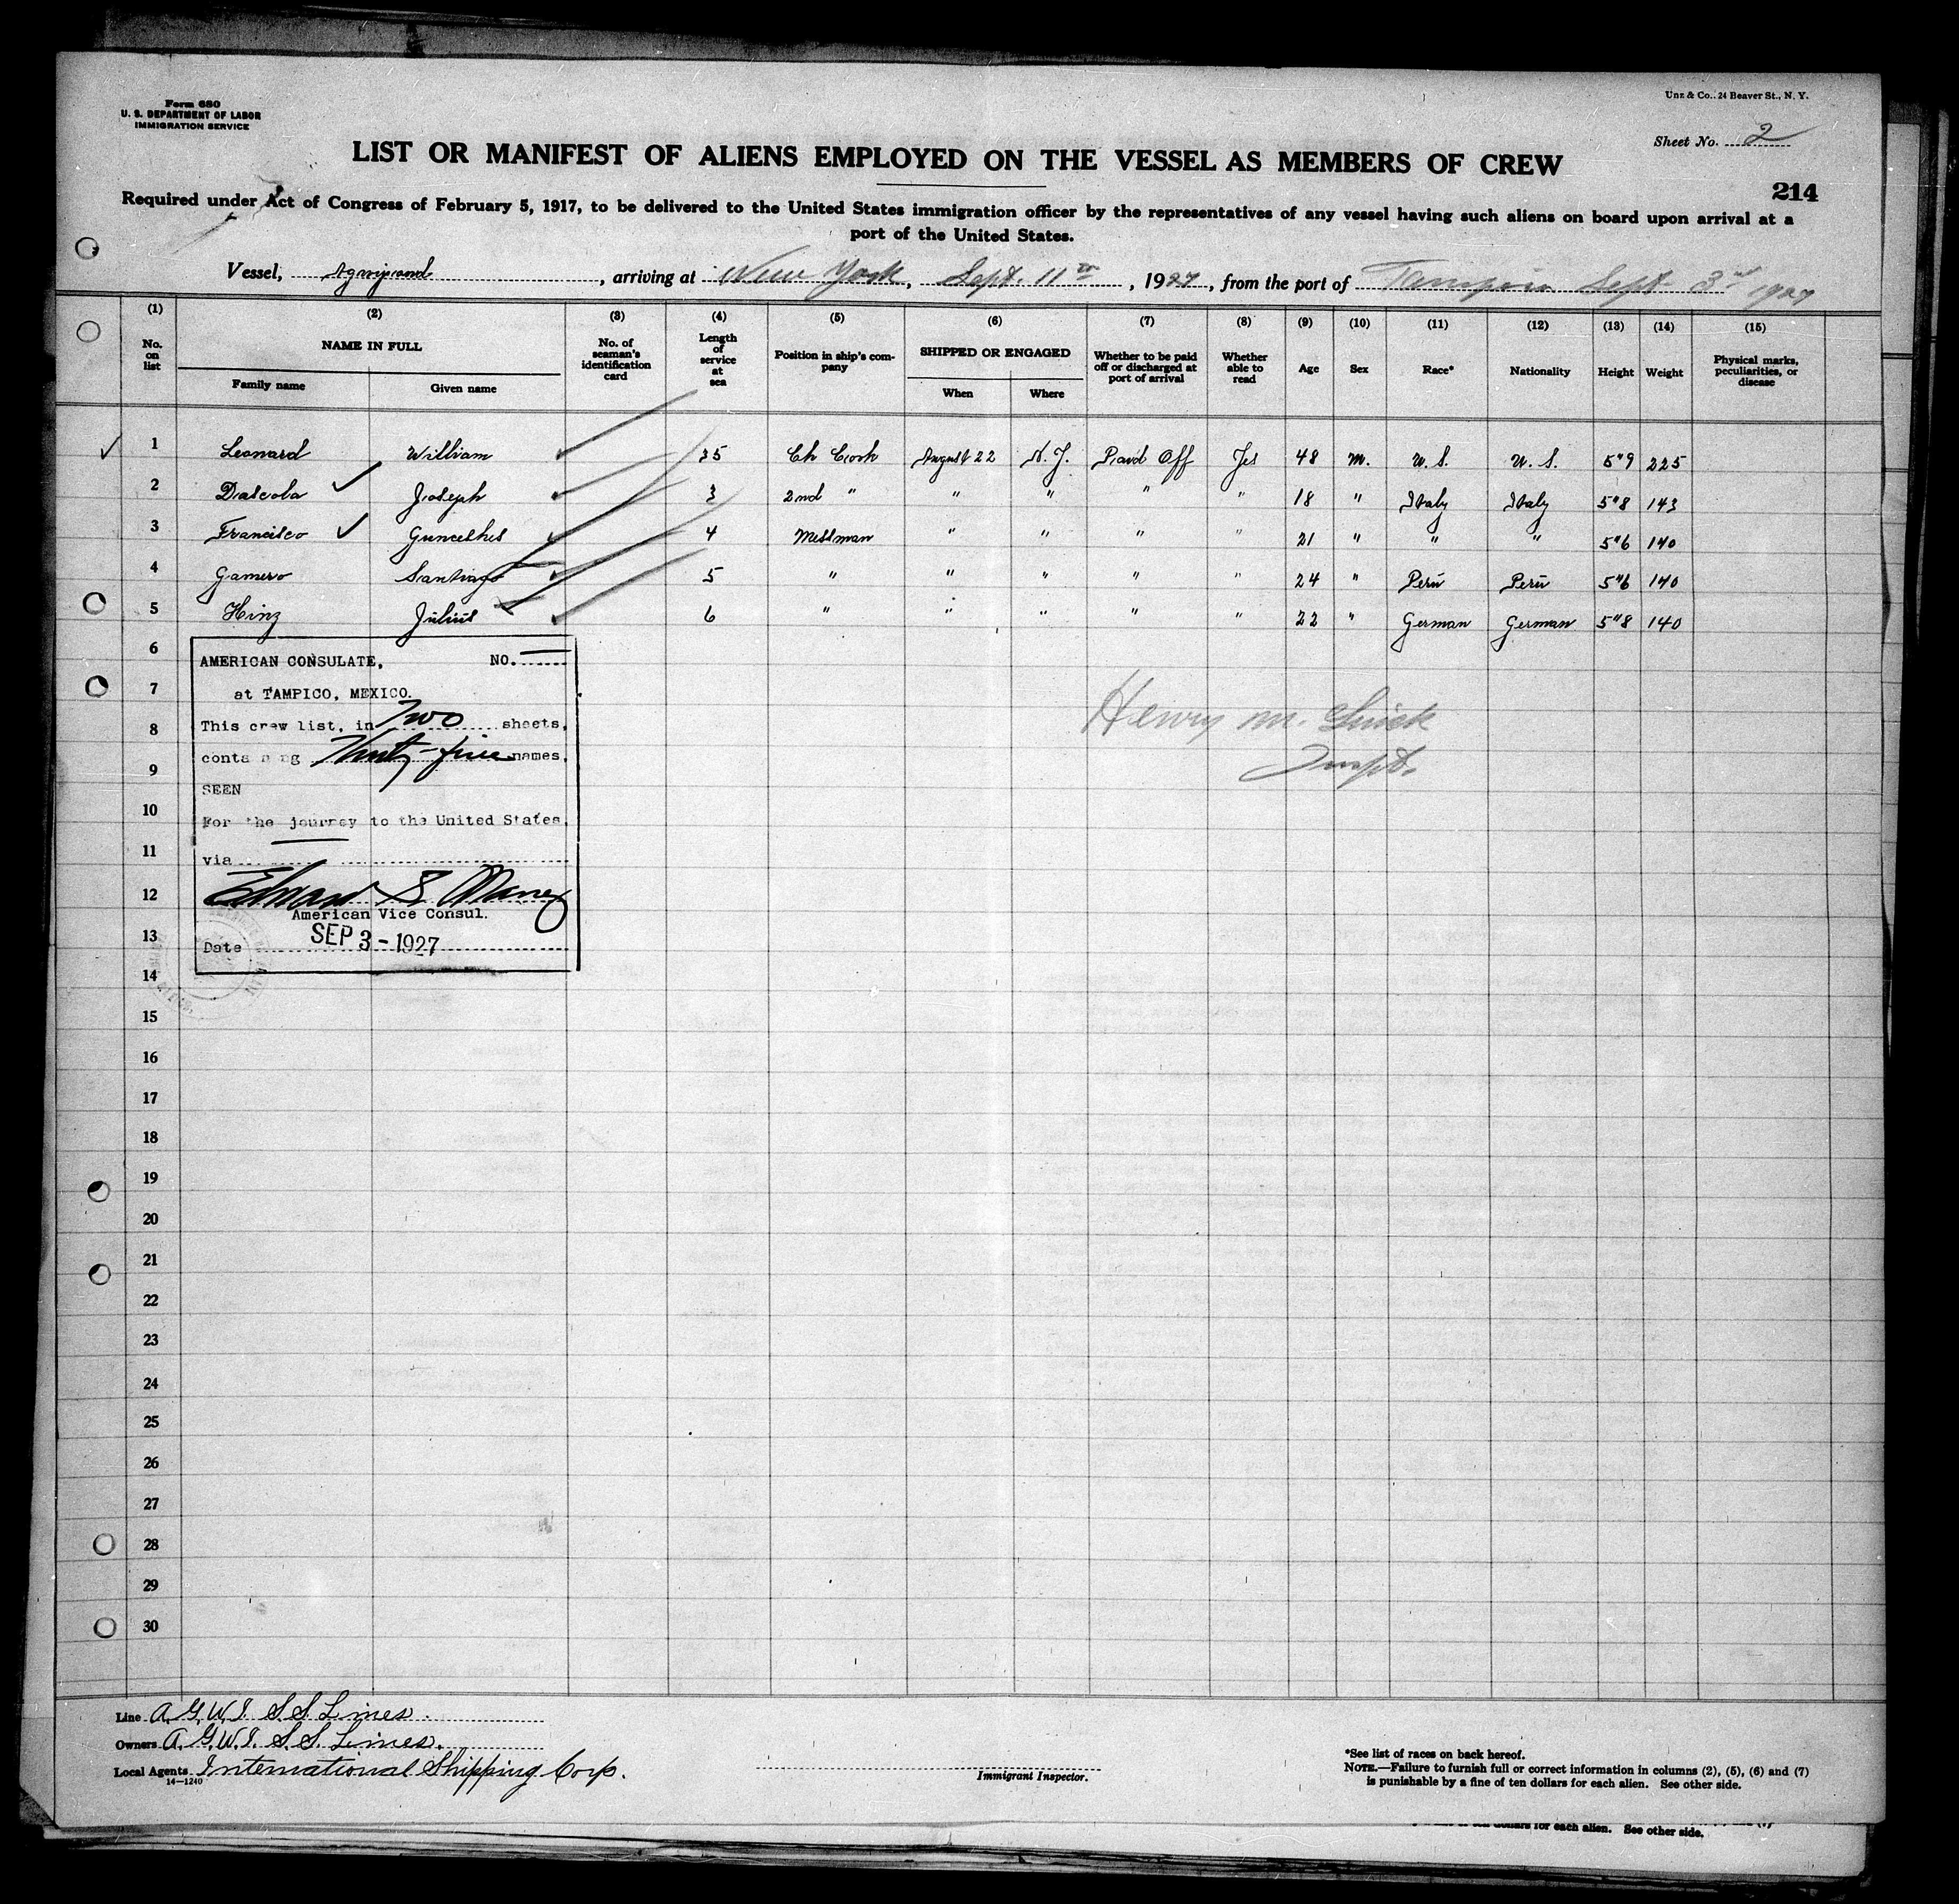 Form 680
U. S. DEPARTMENT OF LABOR
IMMIGRATION SERVICE
Unz & Co., 24 Beaver St., N. Y.
Sheet No. 2
LIST OR MANIFEST OF ALIENS EMPLOYED ON THE VESSEL AS MEMBERS OF CREW
214
Required under Act of Congress of February 5, 1917, to be delivered to the United States immigration officer by the representatives of any vessel having such aliens on board upon arrival at a
port of the United States.
Vessel, , arriving at New York, Sept. 11th, 1927, from the port of Tampico Sept. 3rd 1927
(1) (2) (3) (4) (5) (6) (7) (8) (9) (10) (11) (12) (13) (14) (15)
No. on list NAME IN FULL Family name Given name No. of seaman's identification card Length of service at sea Position in ship's company SHIPPED OR ENGAGED When Where Whether to be paid off or discharged at port of arrival Whether able to read Age Sex Race* Nationality Height Weight Physical marks, peculiarities, or disease
1 Leonard William 35 Ch Cook August 22 N. J. Paid Off Yes 48 M. U. S. U. S. 5"9 225
2 Dascola Joseph 3 2nd " " " " " 18 " Italy Italy 5"8 143
3 Francisco 4 Messman " " " " 21 " " " 5"6 140
4 Gamero Santiago 5 " " " " " 24 " Peru Peru 5"6 140
5 Hinz Julius 6 " " " " " 22 " German German 5"8 140
6
7
8
9
10
11
12
13
14
15
16
17
18
19
20
21
22
23
24
25
26
27
28
29
30
AMERICAN CONSULATE, NO.
at TAMPICO, MEXICO.
This crew list, in Two sheets,
containing Thirty-five names,
SEEN
For the journey to the United States,
via
Edward S Maney
American Vice Consul.
Date SEP 3 - 1927
Henry M.
Inspt.
Line A.G.W.I. S.S. Lines.
Owners A.G.W.I. S.S. Lines.
Local Agents International Shipping Corp.
14-1240
Immigrant Inspector.
*See list of races on back hereof.
NOTE.—Failure to furnish full or correct information in columns (2), (5), (6) and (7)
is punishable by a fine of ten dollars for each alien. See other side.
dollars for each alien. See other side.